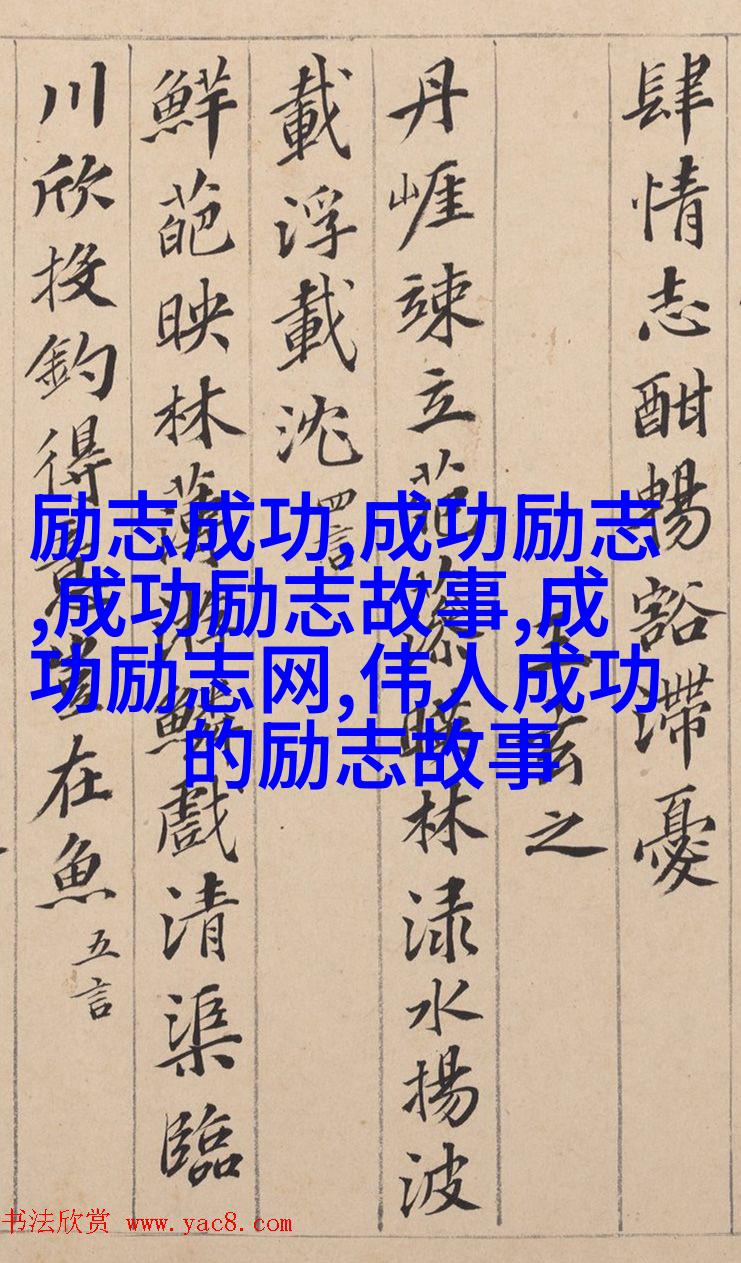 肆情志酣暢豁滯憂
王玄之
丹崖竦立葩藻暎林淥水揚波
載浮載沈 四言
鮮葩映林薄游鱗戲清渠臨
川欣投釣得意豈在魚 五言
励志成功,成功励志
,成功励志故事,成
功励志网,伟人成功
的励志故事
书法欣赏 www.yac8.com